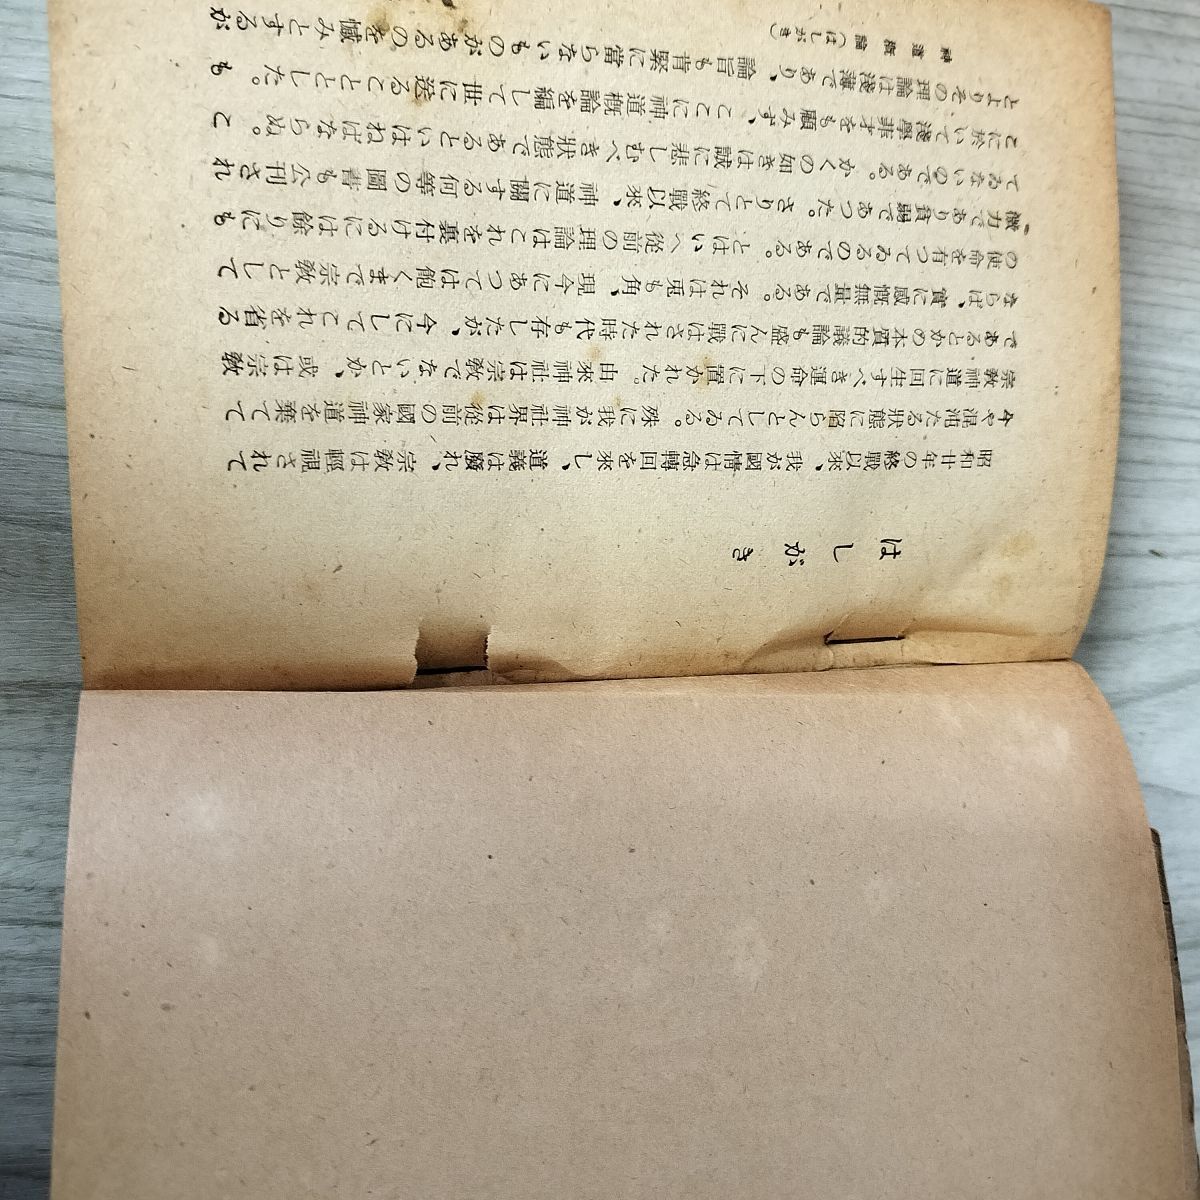 はしがき
昭和廿年の終戰以來、我が國情は急轉回を來し、道義は廢れ、宗教は輕視されて
今や混沌たる狀態に陷らんとしてゐる。殊に我が神社界は從前の國家神道を棄てて
宗教神道に回生すべき運命の下に置かれた。由來神社は宗教でないとか、或は宗教
であるとかの本質的議論も盛んに戰はされた時代も存したが、今にしてこれを省る
ならば、實に感慨無量である。それは兎も角、現今にあつては飽くまで宗教として
の使命を有つてゐるのである。とはいへ從前の理論はこれを裏付けるには餘りにも
微力であり貧弱であつた。さりとて終戰以來、神道に關する何等の圖書も公刊され
てゐないのである。かくの如きは誠に悲しむべき狀態であるといはねばならぬ。こ
こに於いて淺學非才をも顧みず、ここに神道概論を編して世に送ることとした。も
とよりその理論は淺薄であり、論旨も肯綮に當らないものがあるのを憾みとするが
神道概論(はしがき)